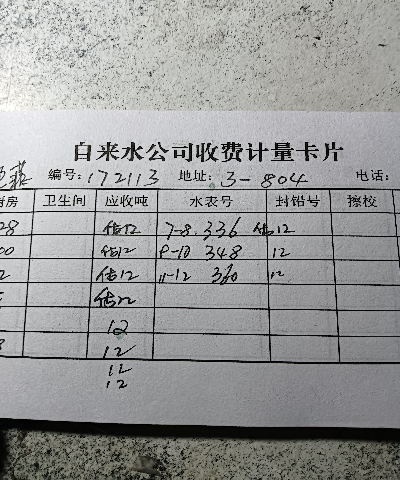 自来水公司收费计量卡片
菲 编号:172113 地址:3-804 电话:
房 卫生间 应收吨 水表号 封铅号 擦校
28 估12 7-8. 336 估12
00 估12 9-10 348 12
2 估12 11-12 360 12
估12
12
12
12
12